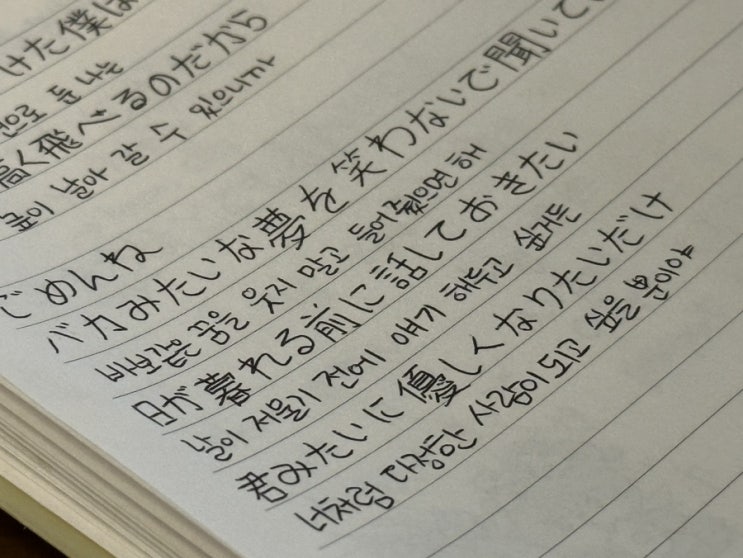 けた僕は
으로 듬 나는
高く飛べるのだから
높이 날아 갈 수 있으니까
ごめんね
バカみたいな夢を笑わないで聞いて
바보같은 꿈을 웃지 말고 들어줬으면 해
日が暮れる前に話しておきたい
날이 저물기 전에 얘기 해두고 싶거든
君みたいに優しくなりたいだけ
너처럼 다정한 사람이 되고 싶을 뿐이야